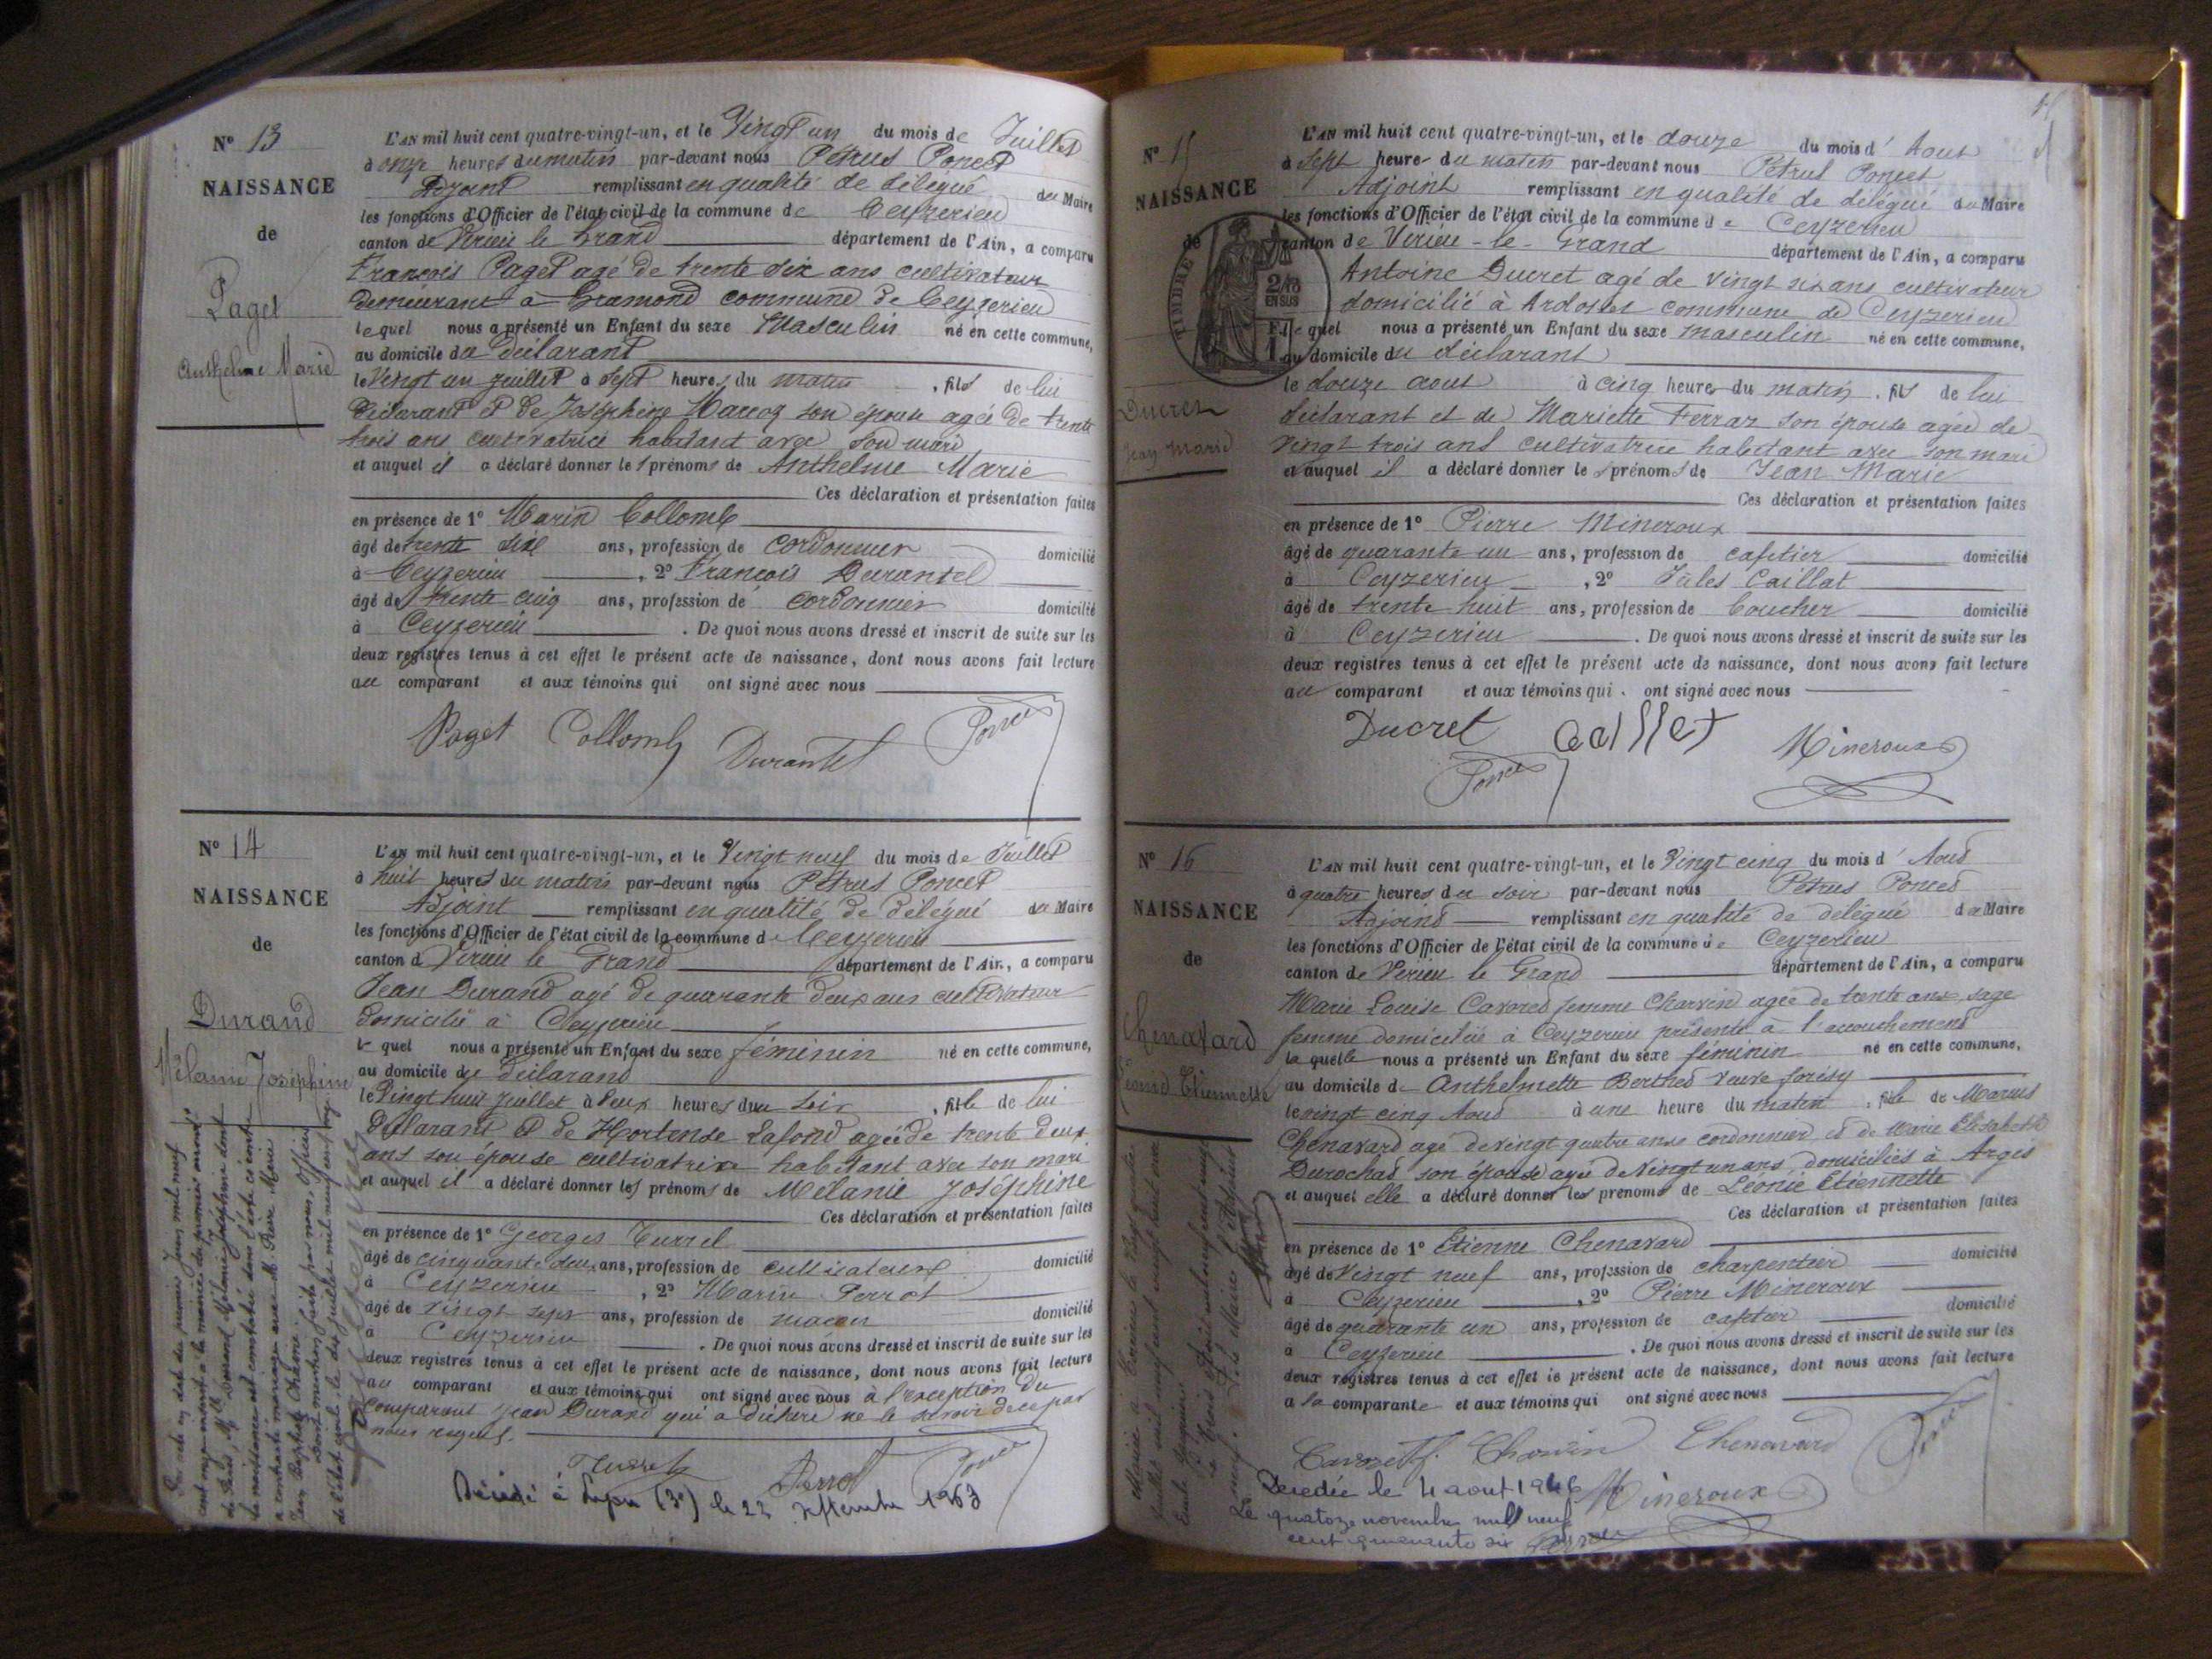 N° 13
NAISSANCE
de
Paget
Anthelme Marie
L'AN mil huit cent quatre-vingt-un, et le Vingt un du mois de Juillet
à onze heures du matin par-devant nous Pétrus Poncet
Adjoint remplissant en qualité de délégué du Maire
les fonctions d'Officier de l'état civil de la commune de Ceyzerieu
canton de Virieu le Grand département de l'Ain, a comparu
François Paget agé de trente six ans cultivateur
demeurant à Gramond commune de Ceyzerieu
lequel nous a présenté un Enfant du sexe Masculin né en cette commune,
au domicile du déclarant
le Vingt un juillet à sept heures du matin, fils de lui
déclarant et de Joséphine son épouse agée de trente
trois ans cultivatrice habitant avec son mari
et auquel il a déclaré donner les prénoms de Anthelme Marie
Ces déclaration et présentation faites
en présence de 1° Marin Collomb
âgé de trente six ans, profession de cordonnier domicilié
à Ceyzerieu, 2° François Durantel
âgé de trente cinq ans, profession de cordonnier domicilié
à Ceyzerieu. De quoi nous avons dressé et inscrit de suite sur les
deux registres tenus à cet effet le présent acte de naissance, dont nous avons fait lecture
au comparant et aux témoins qui ont signé avec nous
Paget Collomb Durantel Poncet
N° 14
NAISSANCE
de
Durand
Mélanie Joséphine
L'AN mil huit cent quatre-vingt-un, et le Vingt neuf du mois de Juillet
à huit heures du matin par-devant nous Pétrus Poncet
Adjoint remplissant en qualité de délégué du Maire
les fonctions d'Officier de l'état civil de la commune de Ceyzerieu
canton de Virieu le Grand département de l'Ain, a comparu
Jean Durand agé de quarante deux ans cultivateur
domicilié à Ceyzerieu
le quel nous a présenté un Enfant du sexe féminin né en cette commune,
au domicile du déclarand
le Vingt huit juillet à deux heures du soir, fille de lui
déclarant et de Hortense Lafond agée de trente deux
ans son épouse cultivatrice habitant avec son mari
et auquel il a déclaré donner les prénoms de Mélanie Joséphine
Ces déclaration et présentation faites
en présence de 1° Georges Turrel
âgé de cinquante deux ans, profession de cultivateur domicilié
à Ceyzerieu, 2° Marin Perrot
âgé de vingt sept ans, profession de maçon domicilié
à Ceyzerieu. De quoi nous avons dressé et inscrit de suite sur les
deux registres tenus à cet effet le présent acte de naissance, dont nous avons fait lecture
au comparant et aux témoins qui ont signé avec nous à l'exception du
comparant Jean Durand qui a déclaré ne le savoir de ce par
nous requis.
Perrot Poncet
Décédé à Lyon (3e) le 22 septembre 1963
N° 15
NAISSANCE
de
TIMBRE
Ducret
Jean Marie
L'AN mil huit cent quatre-vingt-un, et le douze du mois d'Aout
à sept heures du matin par-devant nous Pétrus Poncet
Adjoint remplissant en qualité de délégué du Maire
les fonctions d'Officier de l'état civil de la commune de Ceyzerieu
canton de Virieu-le-Grand département de l'Ain, a comparu
Antoine Ducret agé de vingt six ans cultivateur
domicilié à Ardosset commune de Ceyzerieu
lequel nous a présenté un Enfant du sexe masculin né en cette commune,
au domicile du déclarant
le douze aout à cinq heures du matin, fils de lui
déclarant et de Mariette Ferraz son épouse agée de
vingt trois ans cultivatrice habitant avec son mari
et auquel il a déclaré donner les prénoms de Jean Marie
Ces déclaration et présentation faites
en présence de 1° Pierre Mineroux
âgé de quarante un ans, profession de cafetier domicilié
à Ceyzerieu, 2° Jules Caillat
âgé de trente huit ans, profession de boucher domicilié
à Ceyzerieu. De quoi nous avons dressé et inscrit de suite sur les
deux registres tenus à cet effet le présent acte de naissance, dont nous avons fait lecture
au comparant et aux témoins qui ont signé avec nous
Ducret Mineroux
Poncet
N° 16
NAISSANCE
de
Chenavard
Léonie Etiennette
L'AN mil huit cent quatre-vingt-un, et le Vingt cinq du mois d'Aout
à quatre heures du soir par-devant nous Pétrus Poncet
Adjoint remplissant en qualité de délégué du Maire
les fonctions d'Officier de l'état civil de la commune de Ceyzerieu
canton de Virieu le Grand département de l'Ain, a comparu
Marie Louise femme Charvin agée de trente ans sage
femme domiciliée à Ceyzerieu présente à l'accouchement
la quelle nous a présenté un Enfant du sexe féminin né en cette commune,
au domicile de Anthelmette Berthet veuve
le vingt cinq Aout à une heure du matin, fille de Marius
Chenavard agé de vingt quatre ans cordonnier et de Marie Elisabeth
Durochat son épouse agée de Vingt un ans, domiciliés à Argis
et auquel elle a déclaré donner les prénoms de Léonie Etiennette
Ces déclaration et présentation faites
en présence de 1° Etienne Chenavard
âgé de Vingt neuf ans, profession de charpentier domicilié
à Ceyzerieu, 2° Pierre Mineroux
âgé de quarante un ans, profession de cafetier domicilié
à Ceyzerieu. De quoi nous avons dressé et inscrit de suite sur les
deux registres tenus à cet effet le présent acte de naissance, dont nous avons fait lecture
a la comparante et aux témoins qui ont signé avec nous
Charvin Chenavard Poncet
Mineroux
Décédée le 4 aout 1946
Le quatorze novembre mil neuf
cent quarante six